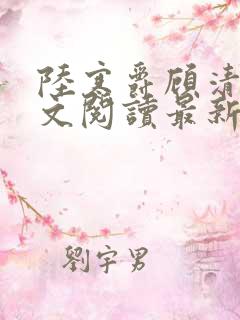 陸寒爵顧清
文閱讀最新
劉宇男